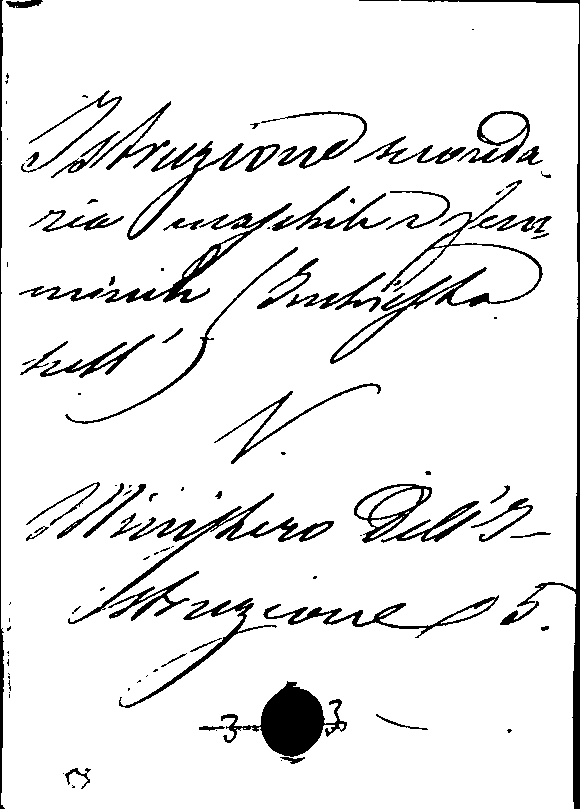 Istruzione seconda-
ria maschile e fem
minile (Inchiesta
sull')
V.
Ministero Dell'I-
struzione 5.
3 3